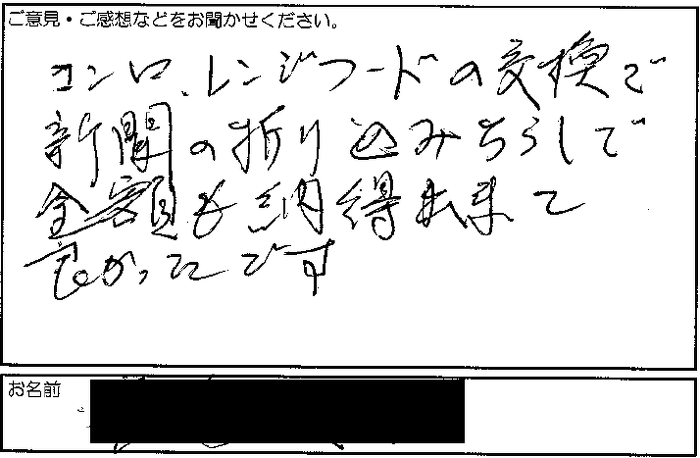 ご意見・ご感想などをお聞かせください。
コンロ、レンジフードの交換で
新聞の折り込みちらしで
金額も納得出来て
良かったです
お名前